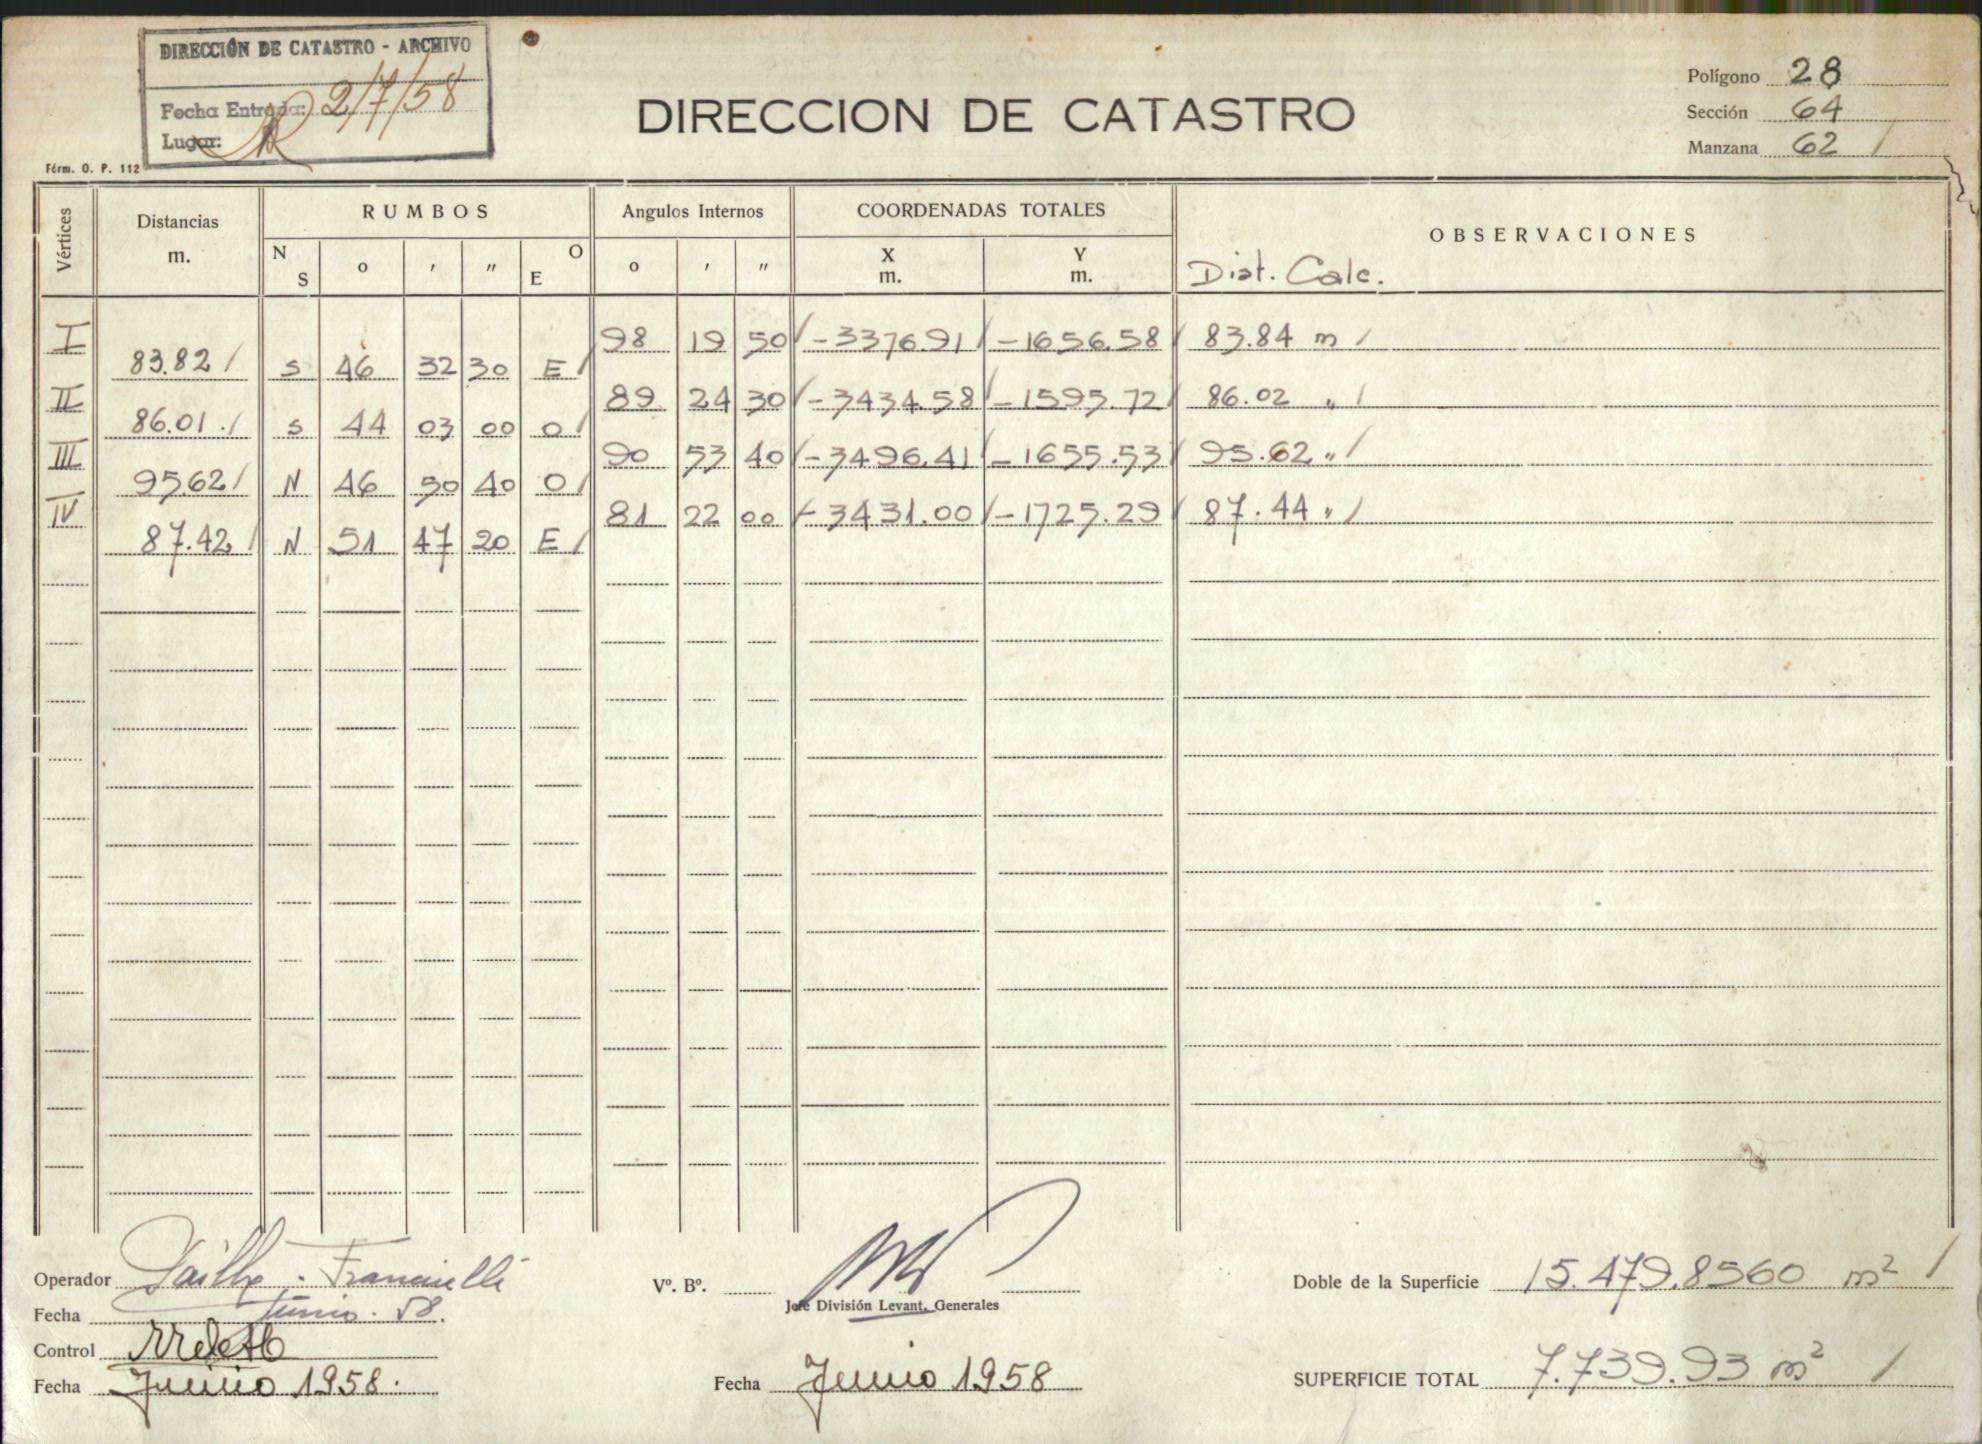 DIRECCIÓN DE CATASTRO - ARCHIVO
Fecha Entrada: 2/7/58
Lugar:
Fórm. O. P. 112
DIRECCION DE CATASTRO
Polígono 28
Sección 64
Manzana 62 /
Vértices Distancias m. RUMBOS Angulos Internos COORDENADAS TOTALES OBSERVACIONES
N S o ' " O E o ' " X m. Y m. Dist. Calc.
I 98 19 50 / -3376.91 / -1656.58 / 83.84 m /
83.82 / S 46 32 30 E /
II 89 24 30 / -3434.58 / -1595.72 / 86.02 " /
86.01 . / S 44 03 00 O /
III 90 53 40 / -3496.41 / -1655.53 / 95.62 " /
95.62 / N 46 50 40 O /
IV 81 22 00 / -3431.00 / -1725.29 / 87.44 " /
87.42 / N 51 47 20 E /
Operador
Fecha Junio . 58.
Control
Fecha Junio 1958.
Vº. Bº.
Jefe División Levant. Generales
Fecha Junio 1958
Doble de la Superficie 15.479.8560 m² /
SUPERFICIE TOTAL 7.739.93 m² /